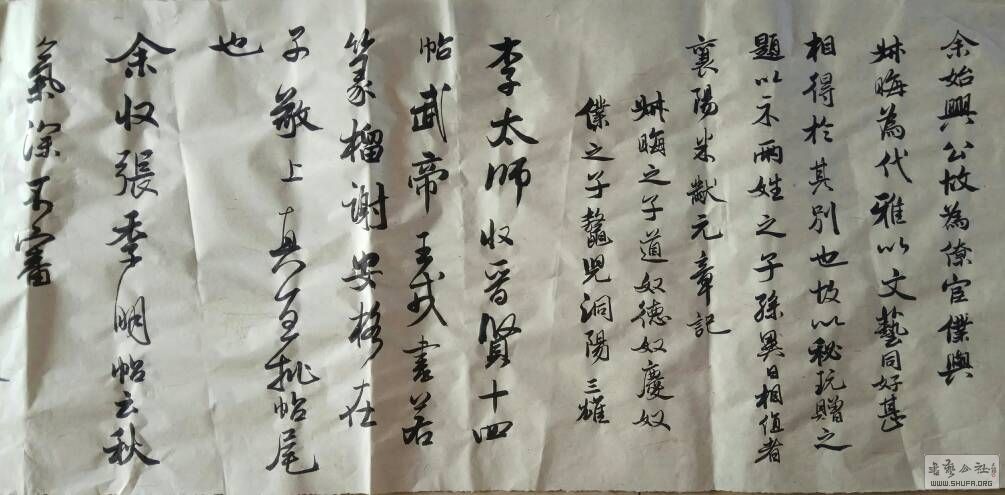 余始興公故為僚宦僕與
叔晦為代雅以文藝同好甚
相得於其別也故以秘玩贈之
題以示兩姓之子孫異日相值者
襄陽米黻元章記
叔晦之子道奴德奴慶奴
僕之子鼇兒洞陽三雄
李太師收晉賢十四
帖武帝王戎書若
篆榴謝安格在
子敬上真宜批帖尾
也
余收張季明帖云秋
氣深不審
书艺公社
WWW.SHUFA.ORG